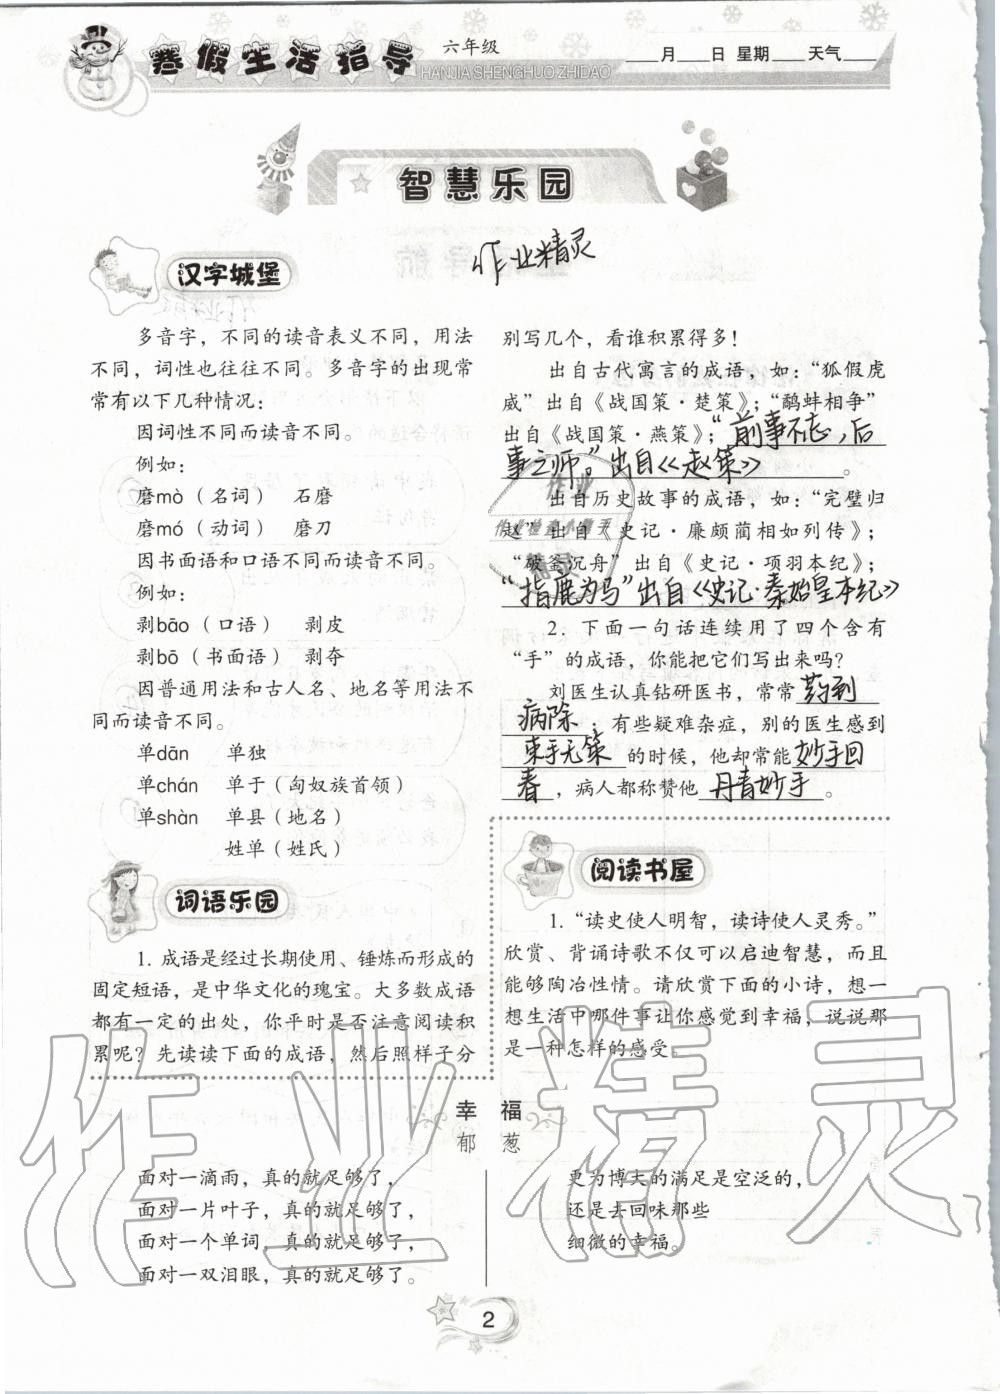 寒假生活指导
六年级
HANJIA SHENGHUO ZHIDAO
____月____日 星期____天气____
智慧乐园
作业精灵
汉字城堡
多音字，不同的读音表义不同，用法
不同，词性也往往不同。多音字的出现常
常有以下几种情况：
因词性不同而读音不同。
例如：
磨mò（名词） 石磨
磨mó（动词） 磨刀
因书面语和口语不同而读音不同。
例如：
剥bāo（口语） 剥皮
剥bō（书面语） 剥夺
因普通用法和古人名、地名等用法不
同而读音不同。
单dān 单独
单chán 单于（匈奴族首领）
单shàn 单县（地名）
姓单（姓氏）
词语乐园
1. 成语是经过长期使用、锤炼而形成的
固定短语，是中华文化的瑰宝。大多数成语
都有一定的出处，你平时是否注意阅读积
累呢？先读读下面的成语，然后照样子分
别写几个，看谁积累得多！
出自古代寓言的成语，如：“狐假虎
威”出自《战国策·楚策》；“鹬蚌相争”
出自《战国策·燕策》；“前事不忘，后
事之师。”出自《赵策》。
出自历史故事的成语，如：“完璧归
赵”出自《史记·廉颇蔺相如列传》；
“破釜沉舟”出自《史记·项羽本纪》；
“指鹿为马”出自《史记·秦始皇本纪》
2. 下面一句话连续用了四个含有
“手”的成语，你能把它们写出来吗？
刘医生认真钻研医书，常常药到
病除；有些疑难杂症，别的医生感到
束手无策的时候，他却常能妙手回
春，病人都称赞他丹青妙手。
阅读书屋
1. “读史使人明智，读诗使人灵秀。”
欣赏、背诵诗歌不仅可以启迪智慧，还
能够陶冶性情。请欣赏下面的小诗，想一
想生活中哪件事让你感觉到幸福，说说那
是一种怎样的感受。
幸 福
郁 葱
面对一滴雨，真的就足够了，
面对一片叶子，真的就足够了，
面对一个单词，真的就足够了，
面对一双泪眼，真的就足够了。
更为博大的满足是空泛的，
还是去回味那些
细微的幸福。
2
作业精灵
作业
作业检查小帮手
精灵